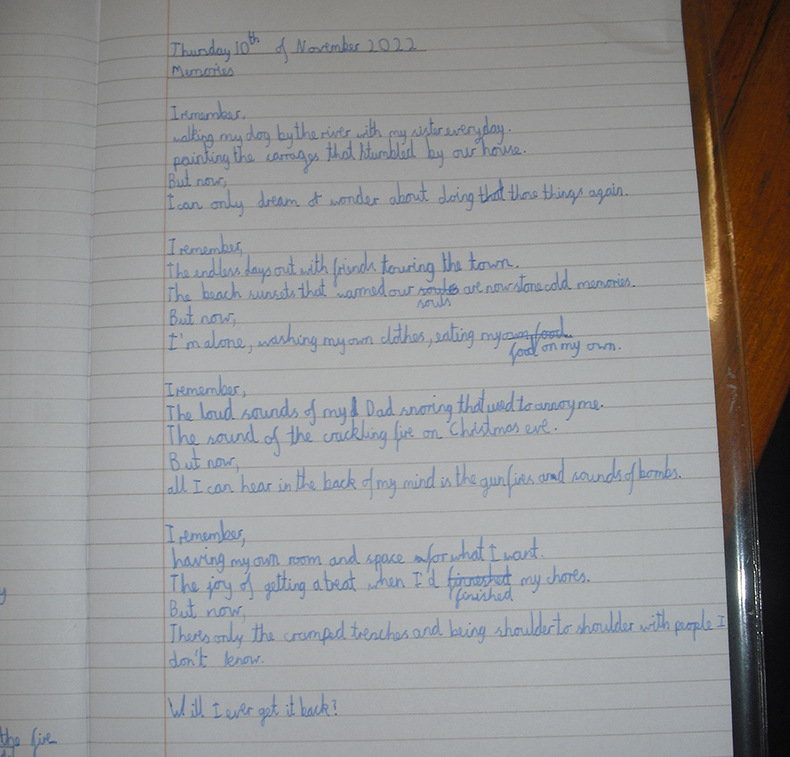 Thursday 10th of November 2022
Memories
I remember,
walking my dog by the river with my sister everyday.
painting the carrages that tumbled by our house.
But now,
I can only dream & wonder about doing that those things again.
I remember,
The endless days out with friends touring the town.
The beach sunsets that warmed our souls are now stone cold memories.
souls
But now,
I'm alone, washing my own clothes, eating my own food
food on my own.
I remember,
The loud sounds of my Dad snoring that used to annoy me.
The sound of the crackling fire on Christmas eve.
But now,
all I can hear in the back of my mind is the gunfires and sounds of bombs.
I remember,
having my own room and space for what I want.
The joy of getting a treat when I'd finneshed my chores.
finished
But now,
Theres only the cramped trenches and being shoulder to shoulder with people I
don't know.
Will I ever get it back?
the fire